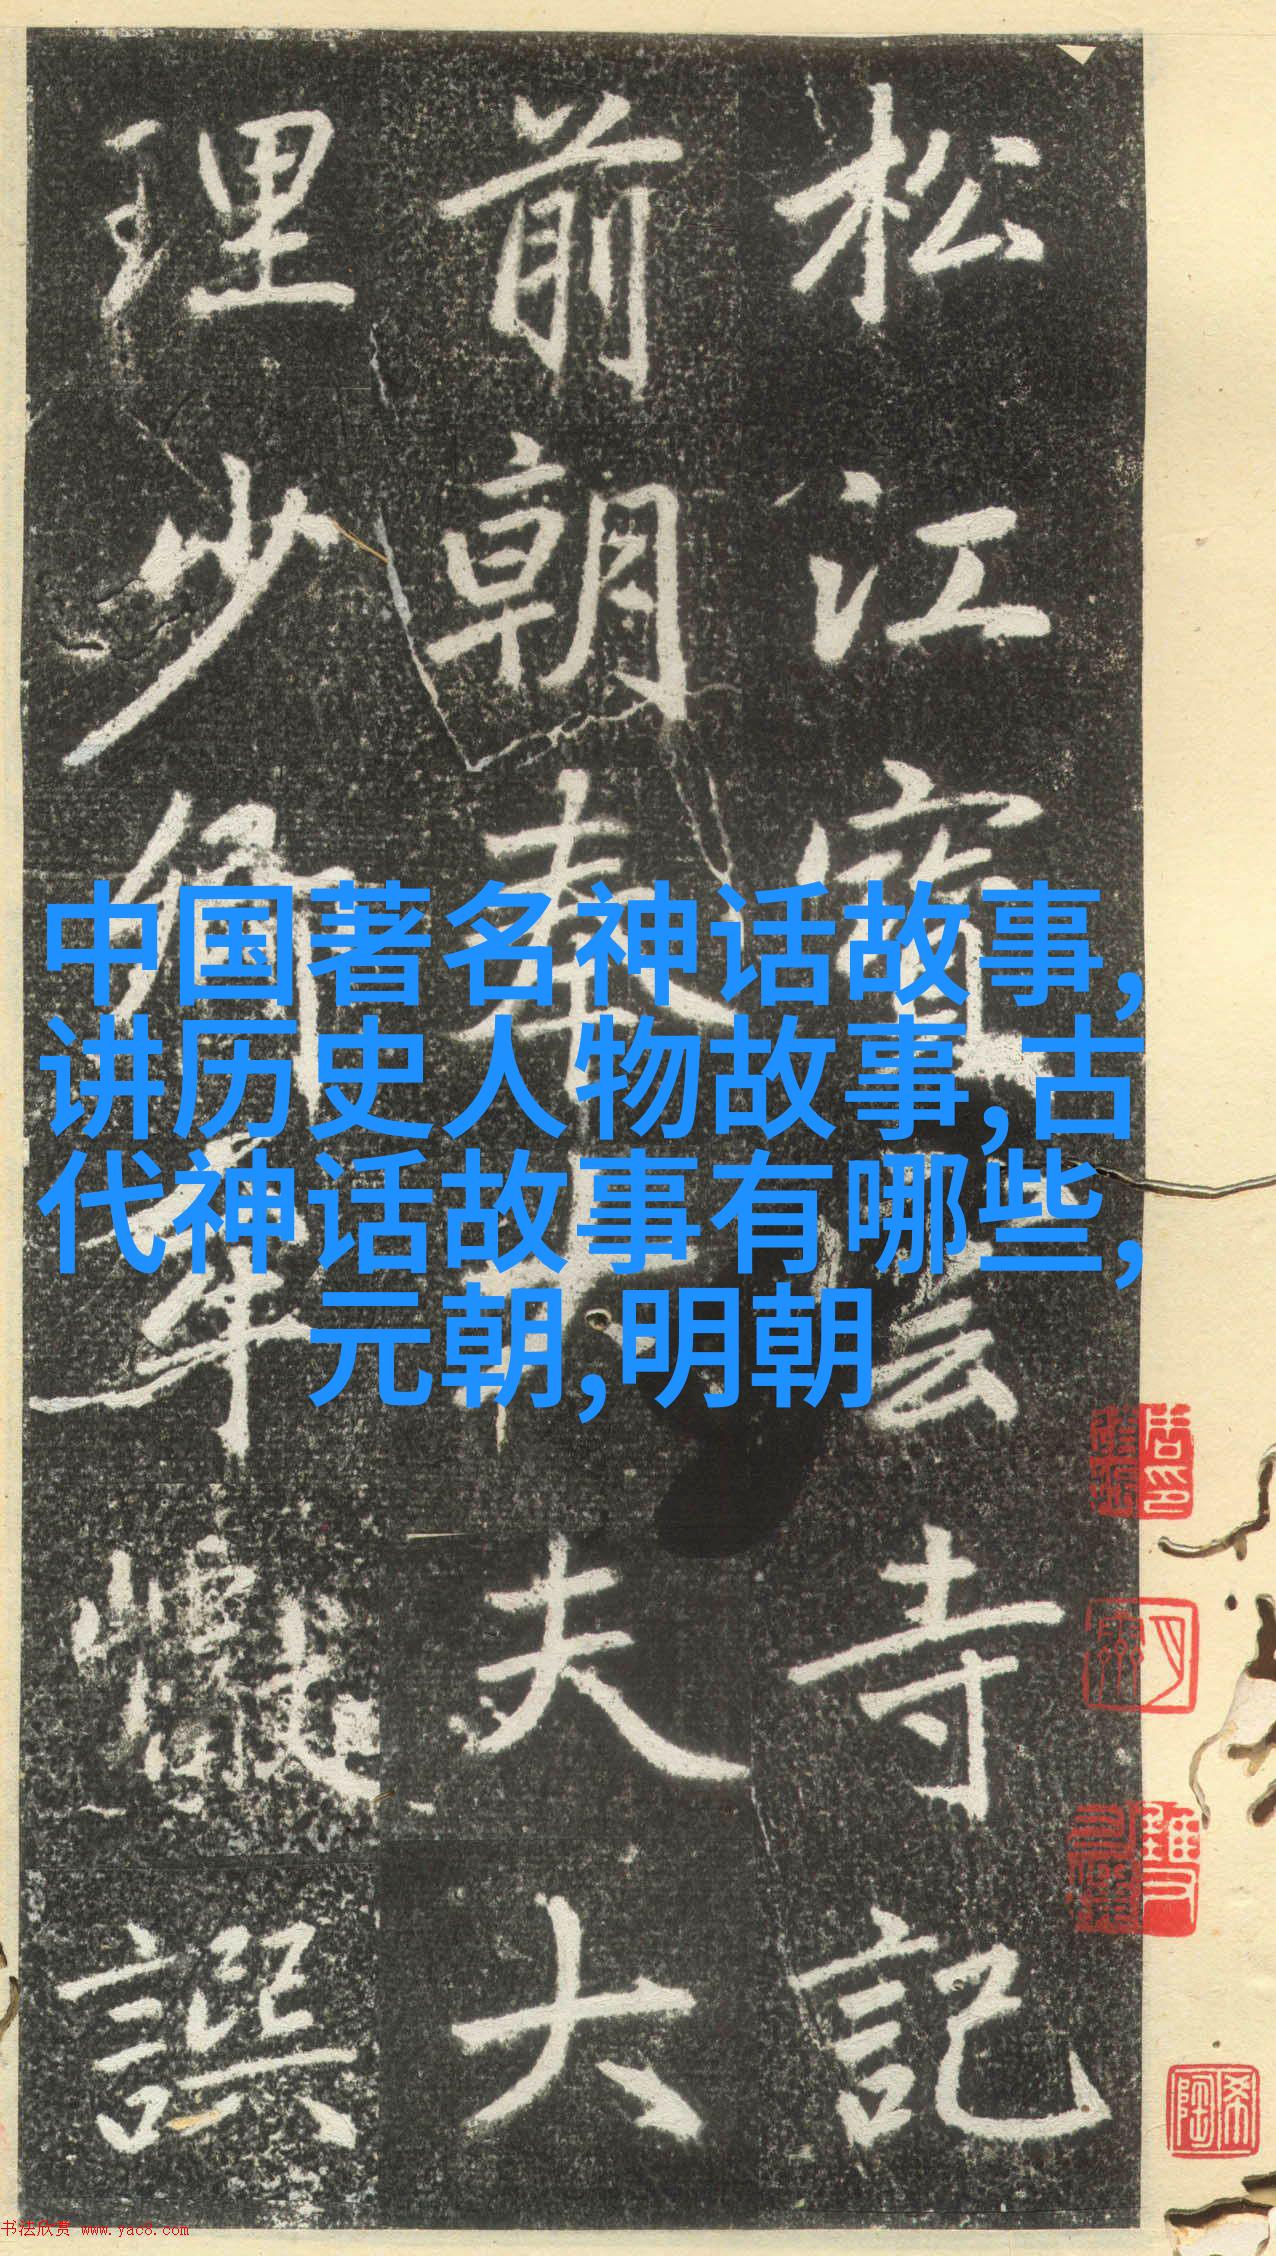 松江寳雲寺記
前朝奉大夫大
理少卿牟巘譔
中国著名神话故事,
讲历史人物故事,古
代神话故事有哪些,
元朝,明朝
希陶
书法欣赏 www.yac8.com